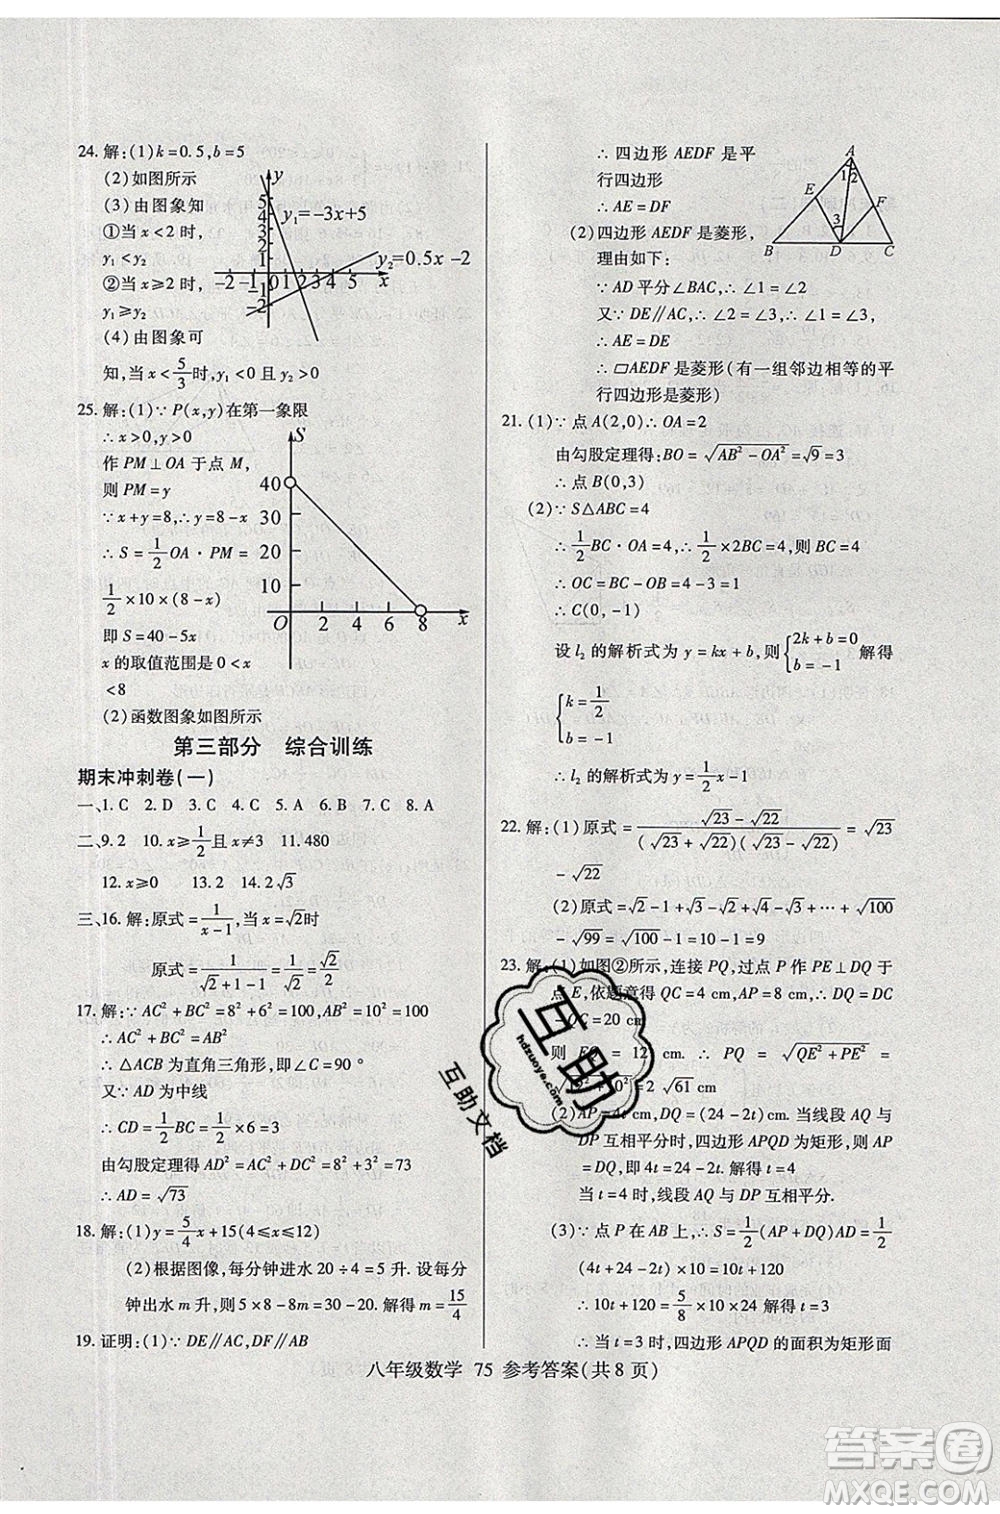 24.解:(1)k=0.5,b=5
(2)如图所示
(3)由图象知
①当x<2时,
y₁<y₂
②当x≥2时,
y₁≥y₂
(4)由图象可
知,当x<5/3时,y₁<0且y₂>0
y
5
4
3
2
1
-2 -1 0 1 2 3 4 5 x
-1
-2
y₁=-3x+5
y₂=0.5x-2
25.解:(1)∵P(x,y)在第一象限
∴x>0,y>0
作PM⊥OA于点M,
则PM=y
∵x+y=8,∴y=8-x
∴S=1/2 OA·PM=
1/2×10×(8-x)
即S=40-5x
x的取值范围是0<x
<8
(2)函数图象如图所示
S
40
30
20
10
O 2 4 6 8 x
第三部分 综合训练
期末冲刺卷(一)
一、1.C 2.D 3.C 4.C 5.A 6.B 7.C 8.A
二、9.2 10.x≥1/2且x≠3 11.480
12.x≥0 13.2 14.2√3
三、16.解:原式=1/(x-1),当x=√2时
原式=1/(√2+1-1)=1/√2=√2/2
17.解:∵AC²+BC²=8²+6²=100,AB²=10²=100
∴AC²+BC²=AB²
∴△ACB为直角三角形,即∠C=90°
又∵AD为中线
∴CD=1/2 BC=1/2×6=3
由勾股定理得AD²=AC²+DC²=8²+3²=73
∴AD=√73
18.解:(1)y=5/4 x+15(4≤x≤12)
(2)根据图像,每分钟进水20÷4=5升.设每分
钟出水m升,则5×8-8m=30-20,解得m=15/4
19.证明:(1)∵DE∥AC,DF∥AB
∴四边形AEDF是平
行四边形
∴AE=DF
(2)四边形AEDF是菱形,
理由如下:
∵AD平分∠BAC,∴∠1=∠2
又∵DE∥AC,∴∠2=∠3,∴∠1=∠3
∴AE=DE
∴▱AEDF是菱形(有一组邻边相等的平
行四边形是菱形)
A
1 2
E
F
3
B D C
21.(1)∵点A(2,0)∴OA=2
由勾股定理得:BO=√(AB²-OA²)=√9=3
∴点B(0,3)
(2)∵S△ABC=4
∴1/2 BC·OA=4,∴1/2×2BC=4,则BC=4
∴OC=BC-OB=4-3=1
∴C(0,-1)
设l₂的解析式为y=kx+b,则{2k+b=0 b=-1 解得
{k=1/2 b=-1
∴l₂的解析式为y=1/2 x-1
22.解:(1)原式=(√23-√22)/((√23+√22)(√23-√22))=√23-
√22
(2)原式=√2-1+√3-√2+√4-√3+…+√100
-√99=√100-1=10-1=9
23.解:(1)如图②所示,连接PQ,过点P作PE⊥DQ于
点E,依题意得QC=4 cm,AP=8 cm,∴DQ=DC
-QC=20 cm
则EQ=12 cm.∴PQ=√(QE²+PE²)=
√(12²+10²)=2√61 cm
(2)AP=4t,DQ=(24-2t)cm 当线段AQ与
DP互相平分时,四边形APQD为矩形,则AP
=DQ,即4t=24-2t,解得t=4
当t=4时,线段AQ与DP互相平分.
(3)∵点P在AB上,∴S=1/2(AP+DQ)AD=1/2
(4t+24-2t)×10=10t+120
∴10t+120=5/8×10×24 解得t=3
∴当t=3时,四边形APQD的面积为矩形面
八年级数学 75 参考答案(共8页)
互助
hdzuoye.com
互助文档
答案卷
MXQE.COM